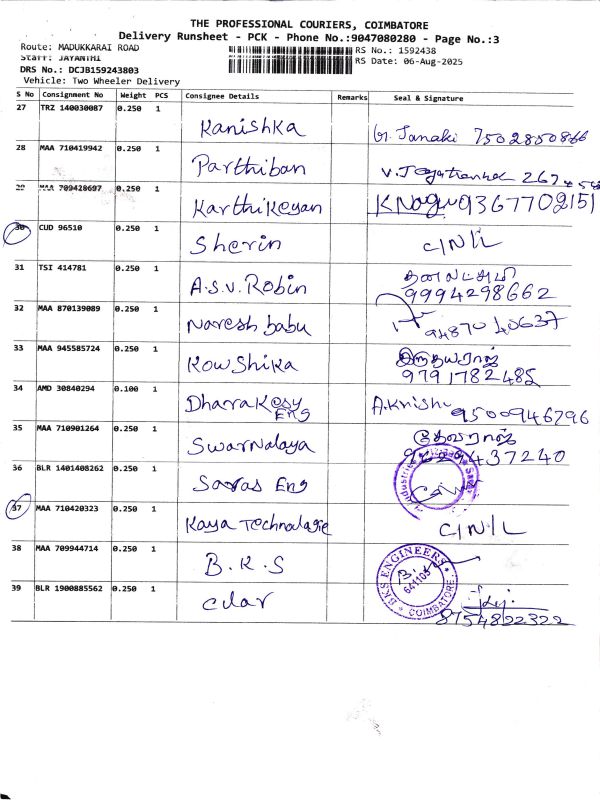 THE PROFESSIONAL COURIERS, COIMBATORE
Delivery Runsheet - PCK - Phone No.:9047080280 - Page No.:3
Route: MADUKKARAI ROAD
RS No.: 1592438
Staff: JAYANTHI
RS Date: 06-Aug-2025
DRS No.: DCJB159243803
Vehicle: Two Wheeler Delivery
S No Consignment No Weight PCS Consignee Details Remarks Seal & Signature
27 TRZ 140030087 0.250 1 Kanishka G. Janaki 7502850866
28 MAA 710419942 0.250 1 Parthiban V.
29 MAA 709428697 0.250 1 Karthikeyan K Nagu 9367702151
30 CUD 96510 0.250 1 Sherin C/N/L
31 TSI 414781 0.250 1 A.S.V. Robin தனலட்சுமி
9994298662
32 MAA 870139089 0.250 1 Naresh babu 94870 40637
33 MAA 945585724 0.250 1 Kowshika
9791782485
34 AMD 30840294 0.100 1 Dhara Eng A. 9500946796
35 MAA 710901264 0.250 1 Swarnalaya தேவராஜ்
437240
36 BLR 1401408262 0.250 1 Saras Eng
37 MAA 710420323 0.250 1 Kaya Technologie C/N/L
38 MAA 709944714 0.250 1 B.K.S BKS ENGINEERS
641105
COIMBATORE
39 BLR 1900885562 0.250 1 Cilar
8754822322